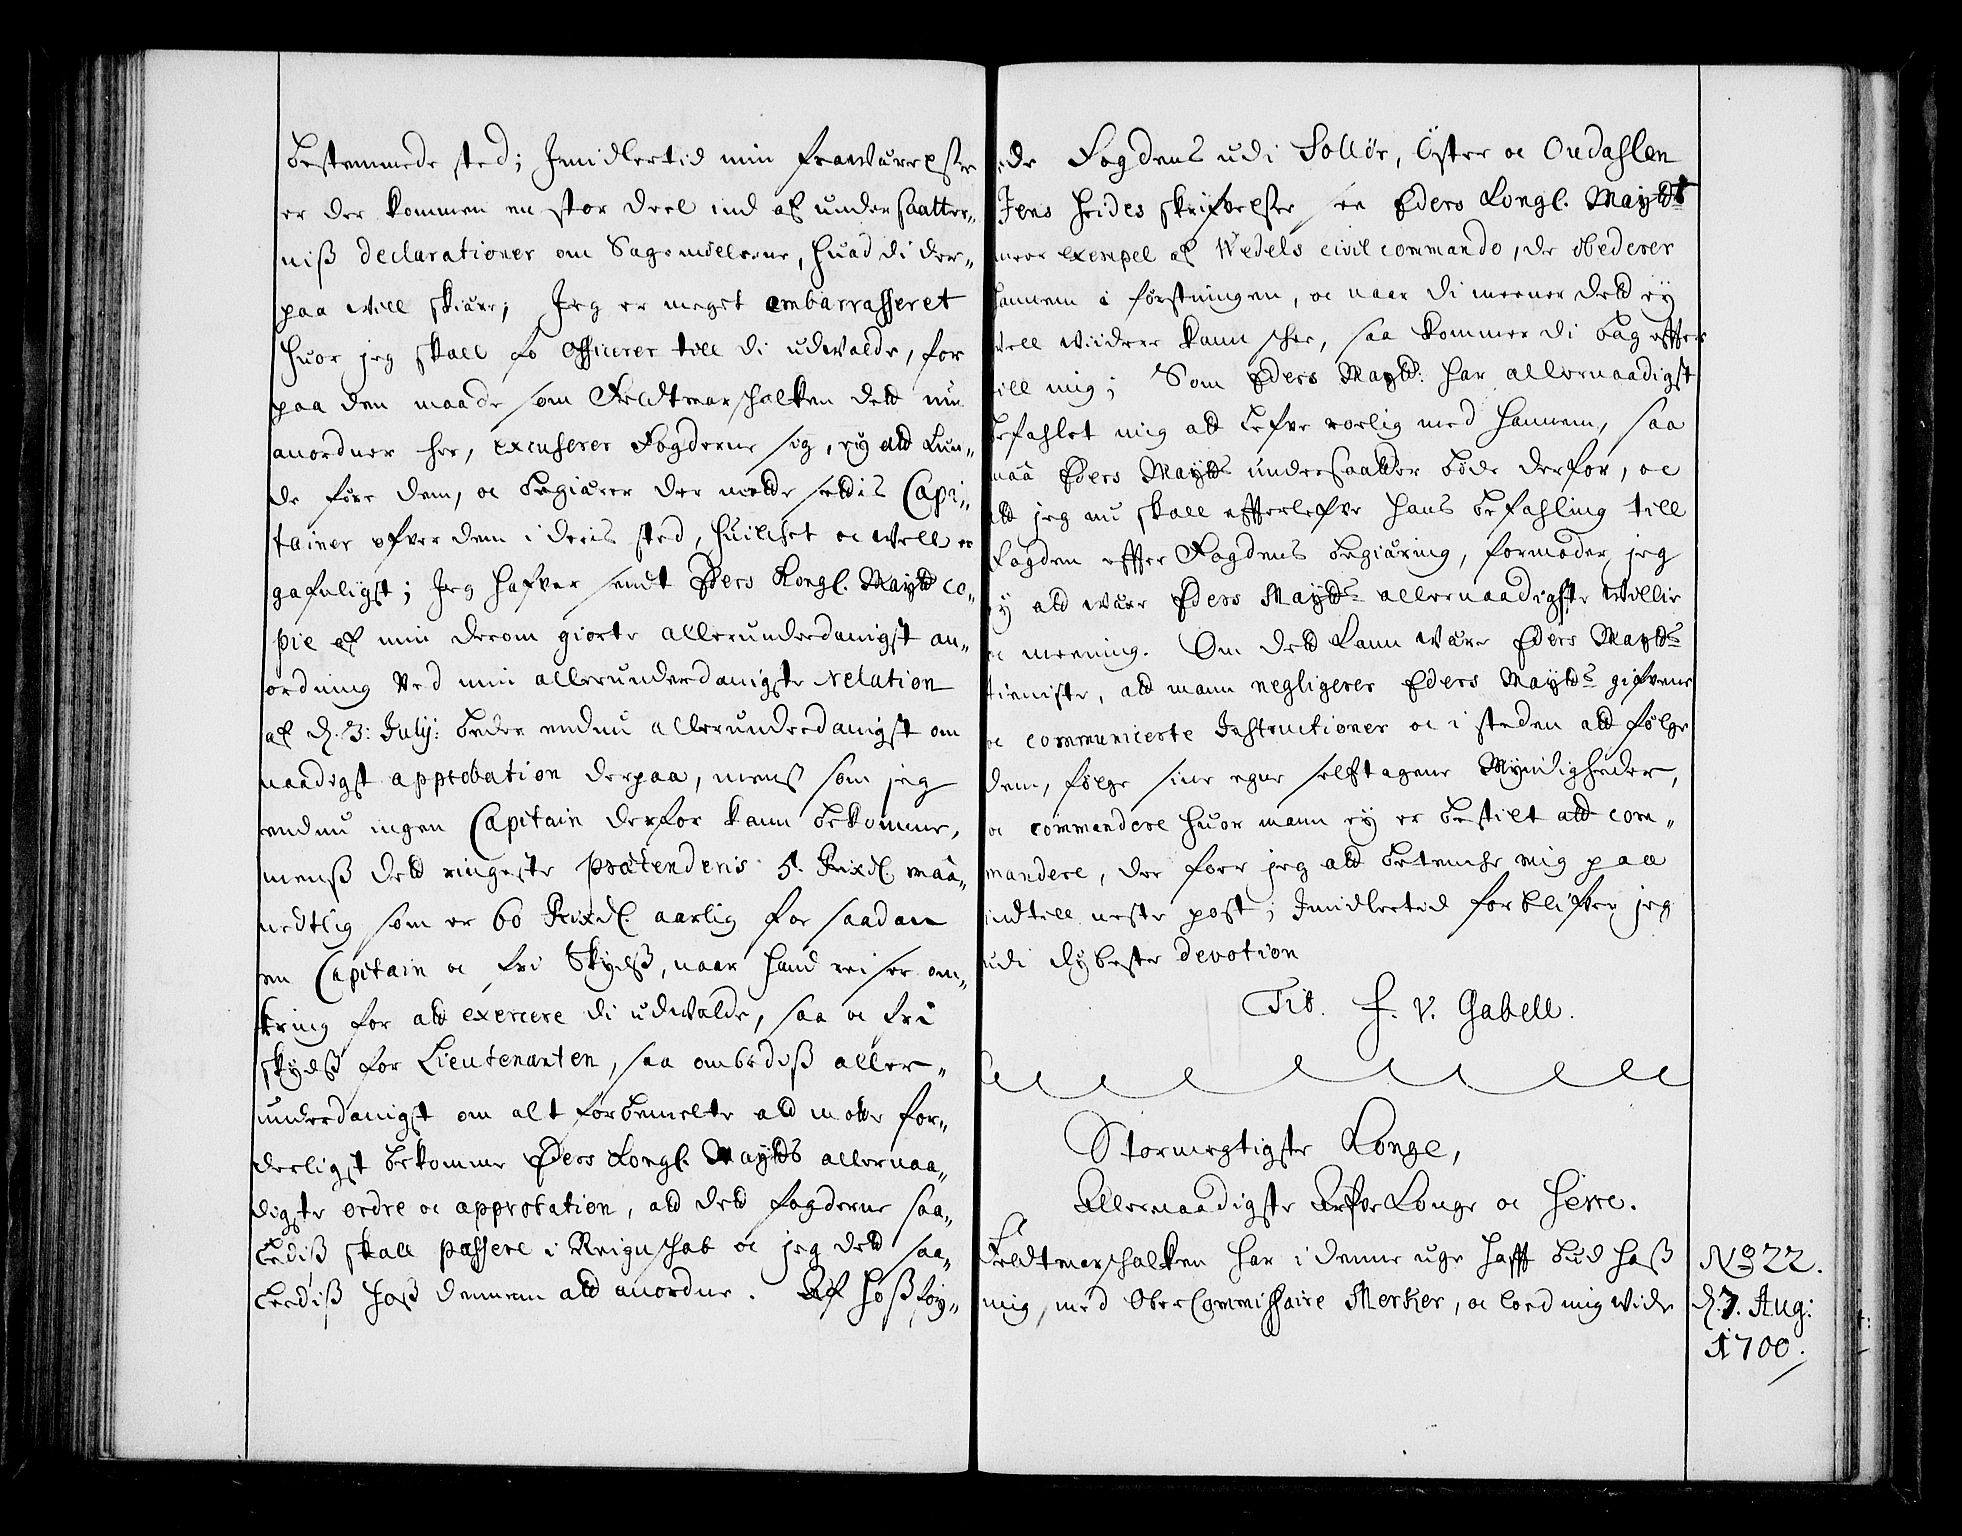 bestemmede sted; Jmidlertid min frawærelse
er der kommen en stor deel ind af undersaatter-
niß declarationer om Sagemøllerne, huad di der-
paa will skiære; Jeg er meget embarrasseret
huor jeg skall fo Officerer till di udwalde, for
paa den maade som Feldtmarschalken deld nu
anordner her, excuserer Fogderne sig, ey ald kun-
de føre dem, oc begiærer der motte settis Capi-
tainer ofver dem i deris sted, huilchet oc well er
gafnligst; Jeg hafver sendt Eders Kongl. Maytt co-
pie af min derom giorte allerunderdanigst an-
ordning ved min allerunderdanigste Relation
af d. 3: July: beder endnu allerunderdanigst om
naadigst approbation derpaa, menß som jeg
endnu ingen Capitain derfor kann bekomme,
menß deld ringeste prætenderis 5. Rixdl. maa-
nedtlig som er 60 Rixdl aarlig for saadan
en Capitain oc fri Skydß, naar hand reiser om-
kring for ald exercere di udwalde, saa oc fri
skydß for Lieutenanten, saa ombediß aller-
underdanigst om alt forbemelte ald motte for-
derligst bekomme Eders Kongl. Maytts allernaa-
digste ordre oc approbation, ald deld fogderne saa-
lediß skall passere i Reignschab oc jeg deld saa-
lediß hoß dennem ald anordne. Af hoßføy-
ede Fogdens udi Solløer, Öster oc Oudahlen
Jens Heides skrifvelse see Eders Kongl. Maytt
meer exempel af Wedels civil commando, de obederer
hannem i førstningen, oc naar di meener deld ey
vell viidere kann schee, saa kommer di bag effter
till mig; Som Eders Maytt: har allernaadigst
befahlet mig ald lefve roelig med hannem, saa
maa Eders Maytts undersaatter lide derfor, oc
ald jeg nu skall effterlefve hans befahling till
Fogden effter Fogdens begiæring, formoder jeg
ey ald være Eders Maytts allernaadigste Villie
oc meening. Om deld kann være Eders Maytts
tieniste, ald mann negligerer Eders Maytts gifvene
oc communicerte Instructioner oc i steden ald følge
dem, følge sine egne selftagene Myndigheder,
oc commandere huor mann ey er bestilt ald com-
mandere, der foer jeg ald betenche mig paa
indtill neste post; Jmidlertid forblifver jeg
udi dybeste devotion
Tit. F. V. Gabell.
Stormegtigste Konge,
Allernaadigste Arfve Konge oc Herre.
Feldtmarschalken har i denne uge hafft bud hoß
mig, med OberCommissaire Merker, oc loed mig vide
No 22.
d. 7. Aug:
1700.